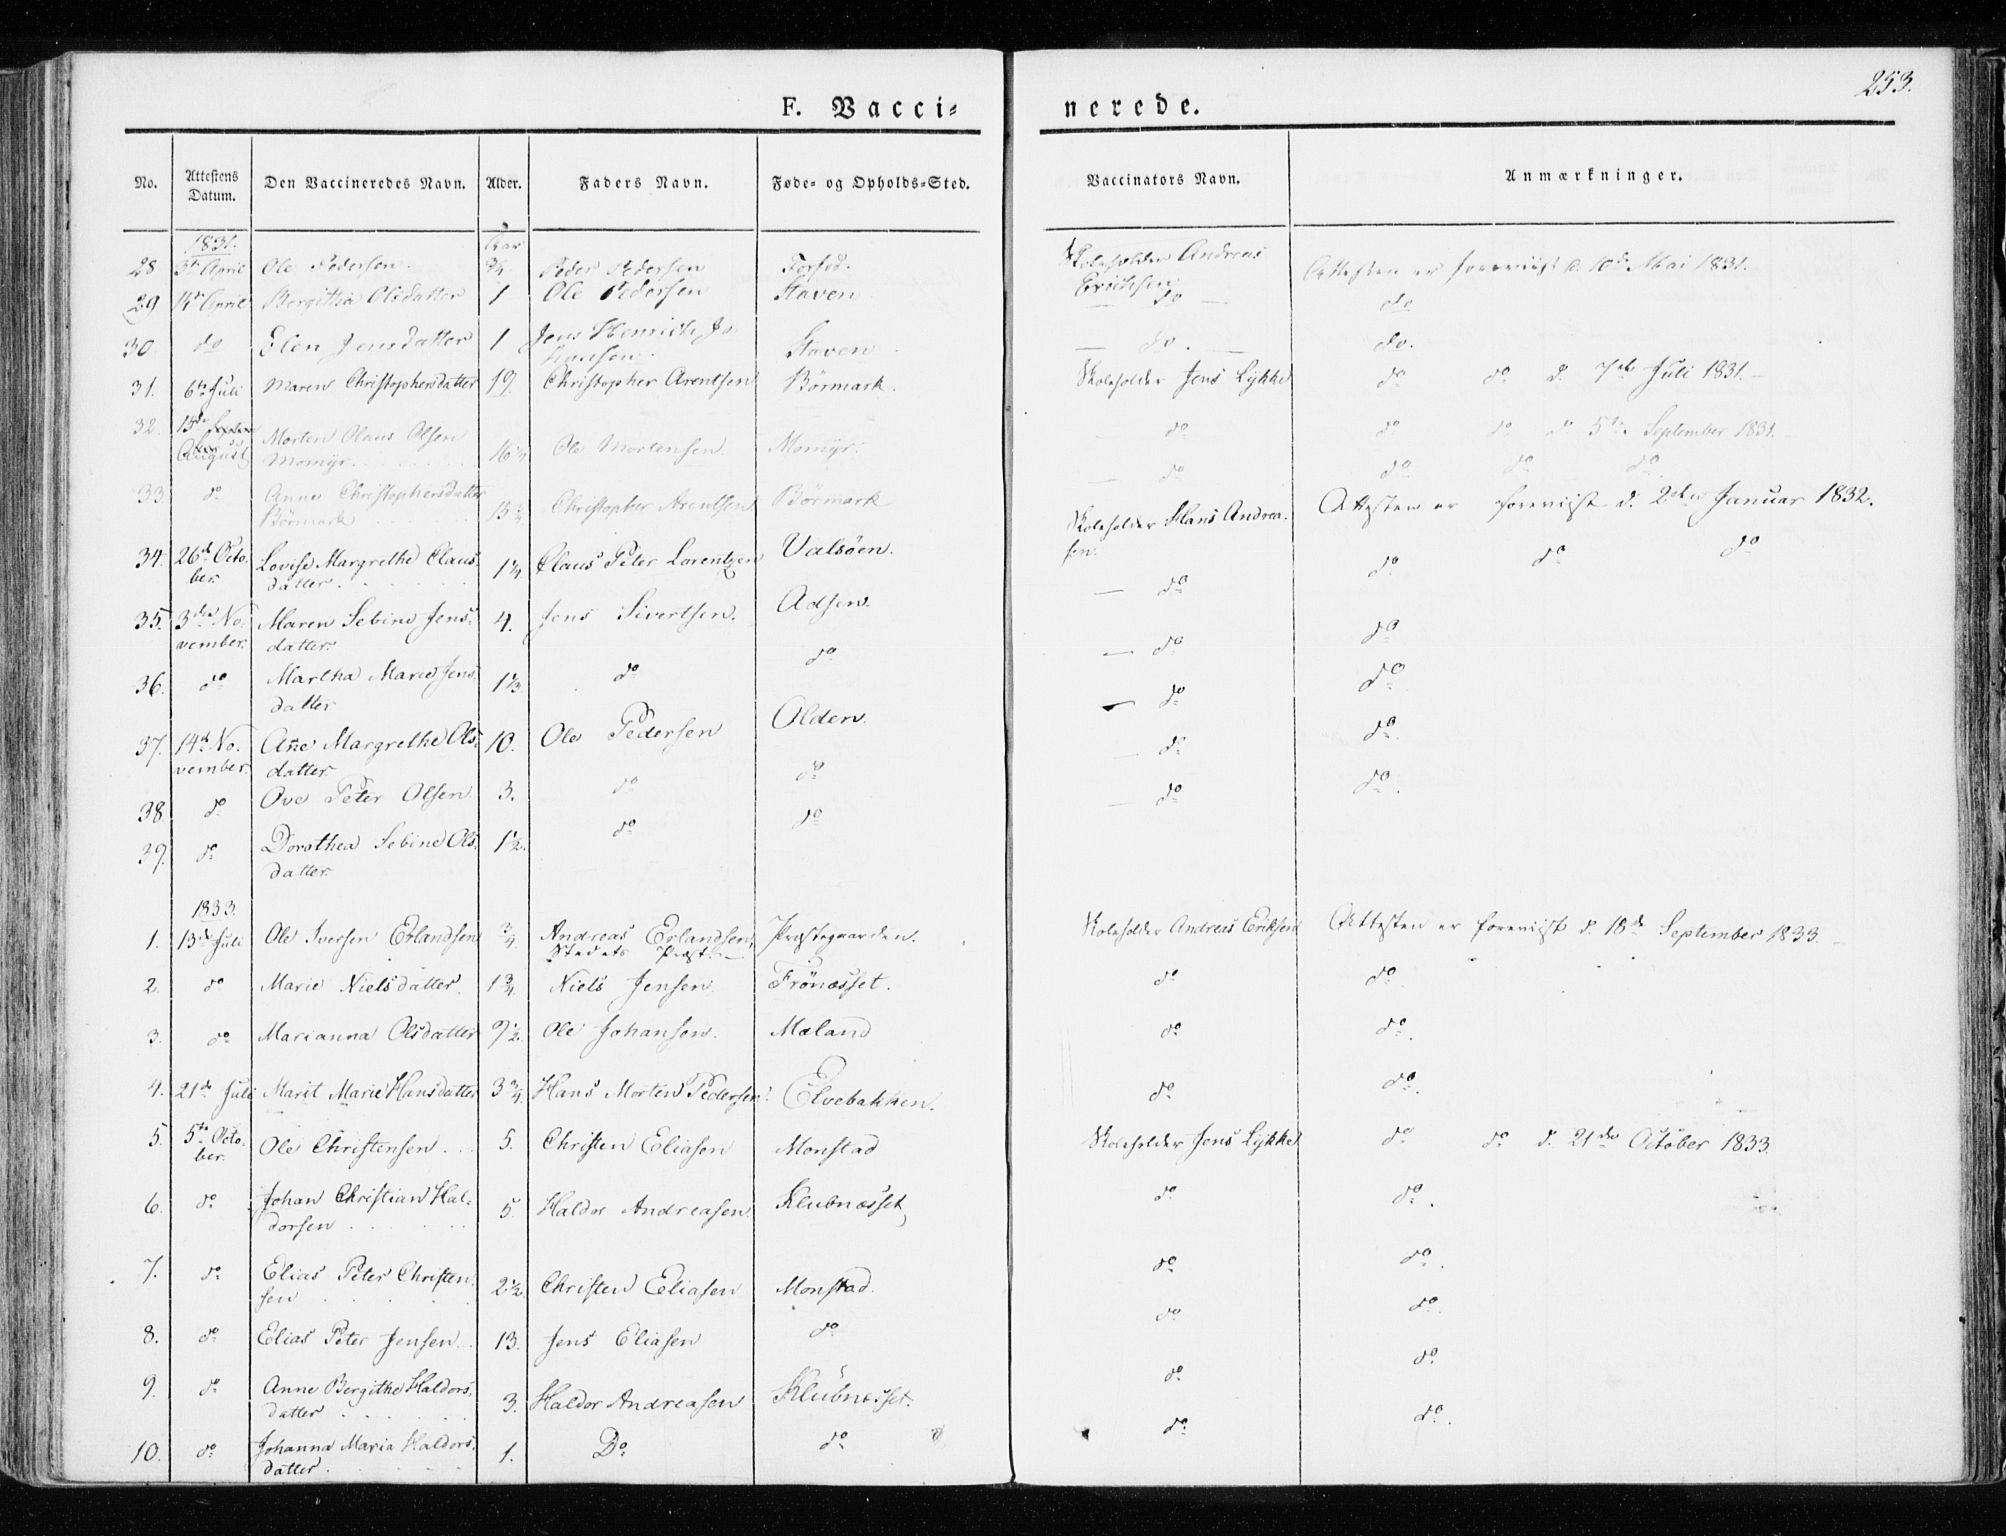 253.
F. Vacci= nerede.
No. Attestens Datum. Den Vaccineredes Navn. Alder. Faders Navn. Føde- og Opholds-Sted. Vaccinators Navn. Anmærkninger.
1831. Aar
28 3die April Ole Pedersen. 3/4 Peder Pedersen Skoleholder Andreas Erichsen Attesten er foreviist d. 10de Mai 1831.
29 April Bergitha Olsdatter 1 Ole Pedersen Staven — do — do
30 do Elen Jensdatter 1 Jens Henrich Johansen. Staven — do. — do.
31. 6te Juli Maren Christophersdatter 19. Christopher Arentsen Börmark. Skoleholder Jens Lykke do do d. 7de Juli 1831. —
32. 15de August Morten Olaus Olsen Momyr. 16 1/4 Ole Mortensen. Momyr. — do do do d. 5te September 1831. —
33 do Anne Christophersdatter Börmark 13 3/4 Christopher Arentsen Börmark — do do do do
34. 26de October. Lovise Margrethe Clausdatter. 1 1/4 Claus Peter Lorentzen Valsöen. Skoleholder Hans Andreasen. Attesten er foreviist d. 2den Januar 1832.
35. 3die November. Maren Sebine Jensdatter. 4. Jens Sivertsen. Adsen. — do do do do
36. do Martha Marie Jensdatter 1 1/3 do do — do do
37. 14de November. Añe Margrethe Olsdatter 10. Ole Pedersen Olden. — do do
38. do Ove Peter Olsen 3. do do — do do.
39. do Dorothea Sebine Olsdatter. 1 1/2. do do — do do.
1833.
1. 13de Juli Ole Iversen Erlandsen 3/4 Andreas Erlandsen, Stedets Præst. — Præstegaarden. Skoleholder Andreas Eriksen Attesten er foreviist d. 18de September 1833. —
2. do Marie Nielsdatter. 1 3/4. Niels Jensen. Frönæsset. do do.
3. do Marianna Olsdatter 9 1/2. Ole Johansen. Mæland do do.
4. 21de Juli Marit Marie Hansdatter 3 3/4. Hans Morten Pedersen Elvebakken. do do.
5. 5te October. Ole Christensen . . 5. Christen Eliasen Monstad Skoleholder Jens Lykke do do d. 21de October 1833.
6. do Johan Christian Haldorsen . . . 5. Haldor Andreasen Klubnæsset do do.
7. do Elias Peter Christensen . . . 2 1/2 Christen Eliasen Monstad. do do.
8. do Elias Peter Jensen . . 13. Jens Eliasen do do do.
9. do Anne Bergithe Haldorsdatter . . . 3. Haldor Andreasen Klübnæsset. do do.
10. do Johanna Maria Haldorsdatter. . . . 1. Do do do do.